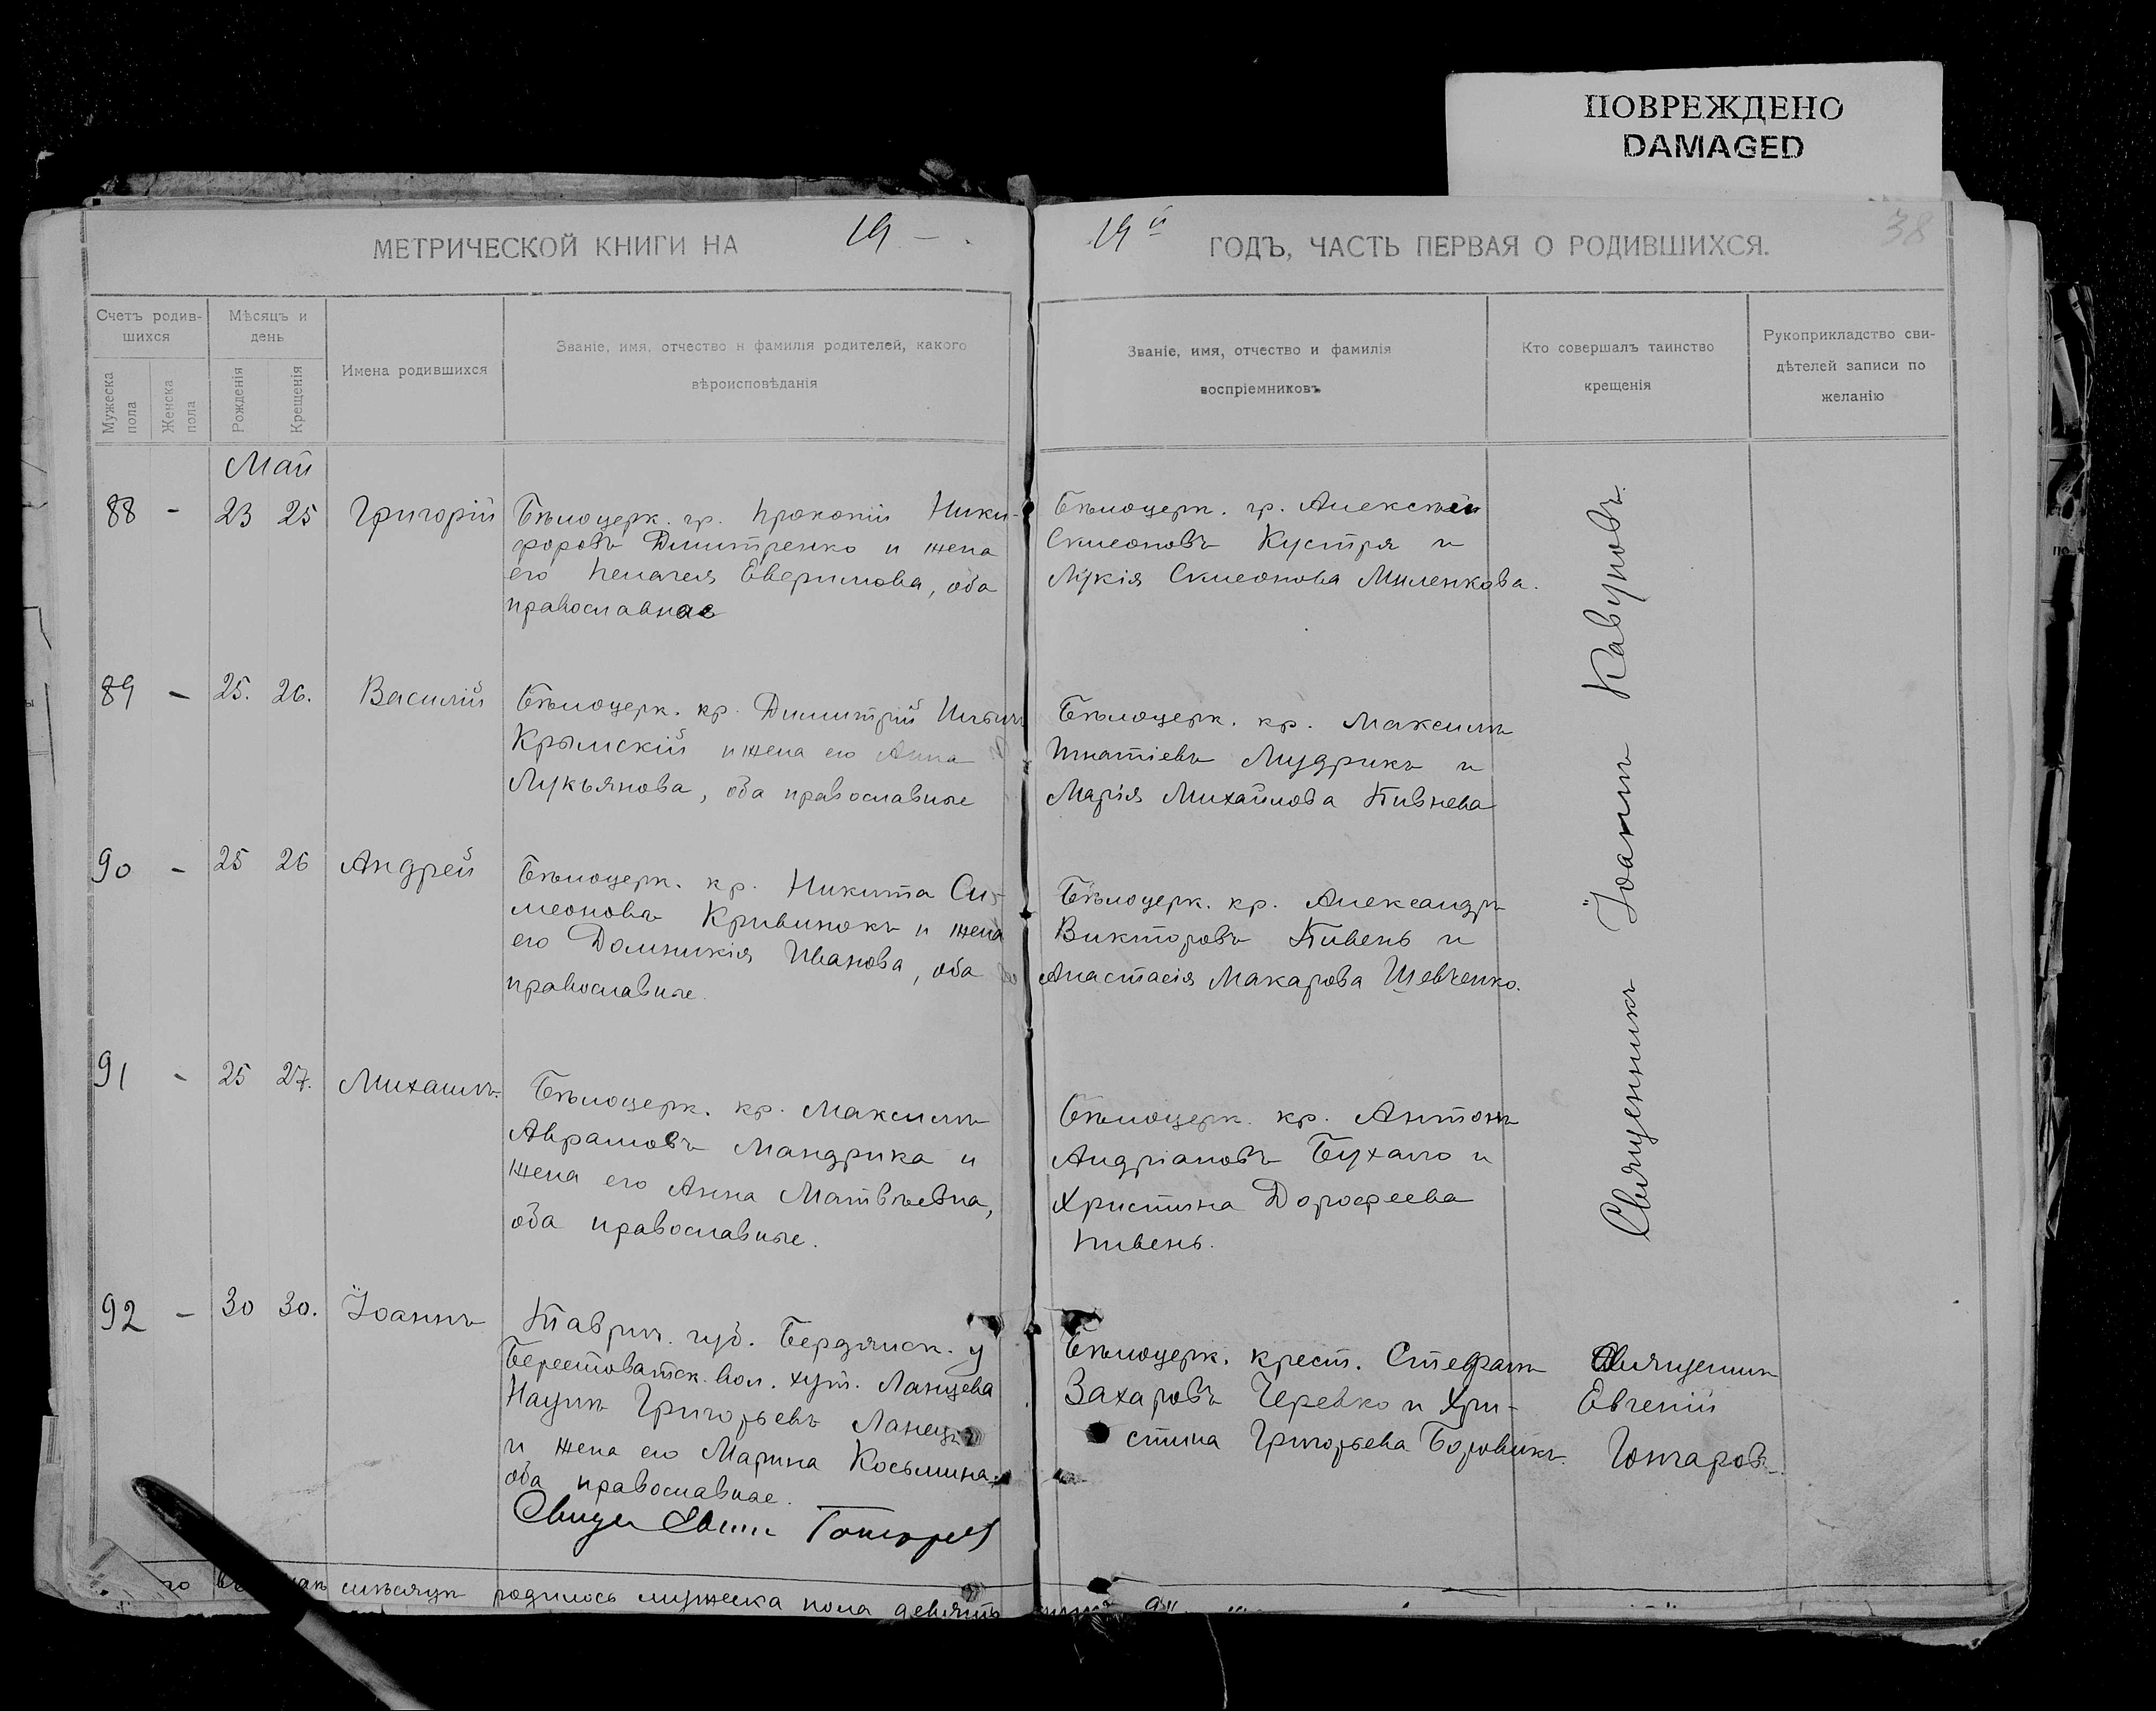 ПОВРЕЖДЕНО
DAMAGED
МЕТРИЧЕСКОЙ КНИГИ НА 19
19й ГОДЪ, ЧАСТЬ ПЕРВАЯ О РОДИВШИХСЯ.
38
Счетъ родив-
шихся
Мужеска
пола
Женска
пола
Мѣсяцъ и
день
Рожденія
Крещенія
Имена родившихся
Званіе, имя, отчество и фамилія родителей, какого
вѣроисповѣданія
Званіе, имя, отчество и фамилія
воспріемниковъ
Кто совершалъ таинство
крещенія
Рукоприкладство сви-
дѣтелей записи по
желанію
Май
88 - 23 25 Григорій
Бѣлоцерк. гр. Прокопій Ники-
форовъ Димитренко и жена
его Пелагея Евфимова, оба
православные
Бѣлоцерк. гр. Алексѣй
Симеоновъ Кустря и
Лукія Симеонова Миленкова.
89 - 25. 26. Василій
Бѣлоцерк. кр. Димитрій Ильинъ
Крымскій и жена его Анна
Лукьянова, оба православные
Бѣлоцерк. кр. Максимъ
Игнатіевъ Мудрикъ и
Марія Михайлова Пивнева
90 - 25 26 Андрей
Бѣлоцерк. кр. Никита Си-
меоновъ Кривинокъ и жена
его Домникія Иванова, оба
православные.
Бѣлоцерк. кр. Александръ
Викторовъ Пивень и
Анастасія Макарова Шевченко.
91 - 25 27. Михаилъ
Бѣлоцерк. кр. Максимъ
Аврамовъ Мандрика и
жена его Анна Матвѣевна,
оба православные.
Бѣлоцерк. кр. Антонъ
Андріановъ Бухало и
Христина Дорофеева
Пивень.
Священникъ Іоаннъ Кавуновъ.
92 - 30 30. Іоаннъ
Таврич. губ. Бердянск. у
Берестоватск. вол. хут. Ланцева
Наумъ Григорьевъ Ланецъ
и жена его Марина Косьмина,
оба православные.
Бѣлоцерк. крест. Стефанъ
Захаровъ Черевко и Хри-
стина Григорьева Боровикъ.
Священникъ
Евгеній
Гончаровъ.
Гончаровъ
мѣсяцѣ родилось мужеска пола девять